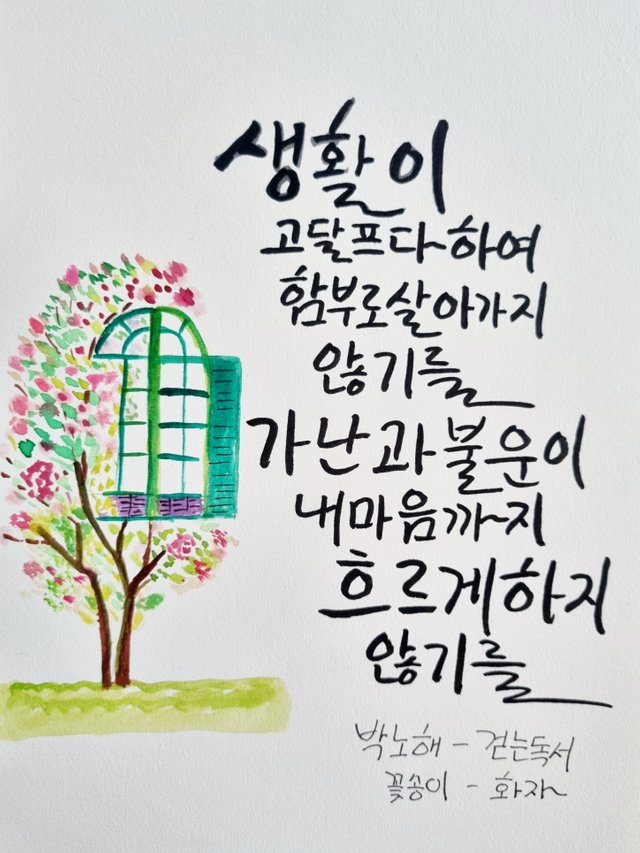 생활이
고달프다하여
함부로살아가지
않기를
가난과불운이
내마음까지
흐르게하지
않기를
박노해 - 걷는독서
꽃송이 - 화자